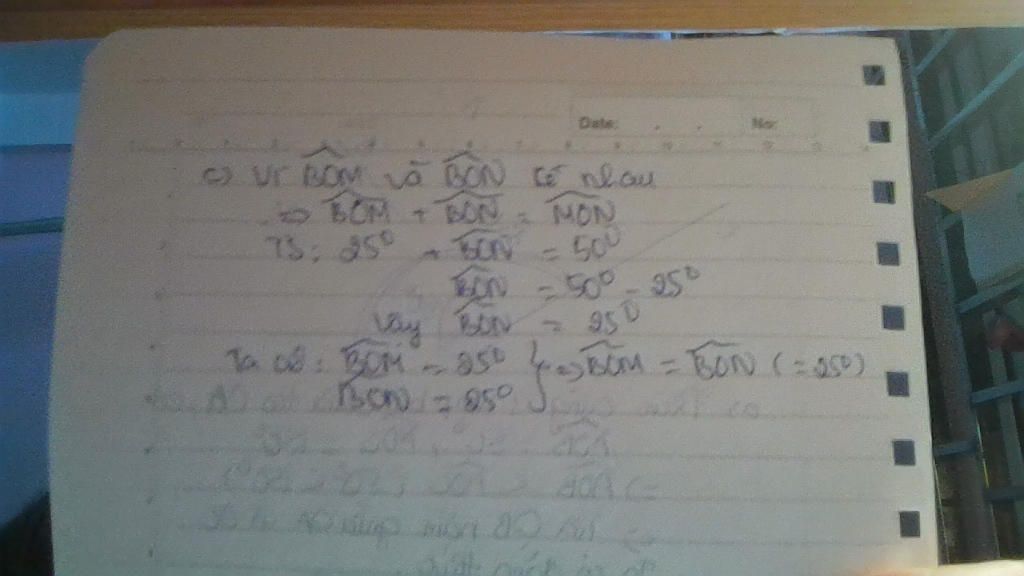 Date: No:
c) Vì BOM và BON kề nhau
=> BOM + BON = MON
TS: 25⁰ + BON = 50⁰
BON = 50⁰ - 25⁰
Vậy BON = 25⁰
Ta có: BOM = 25⁰ } => BOM = BON (= 25⁰)
BON = 25⁰